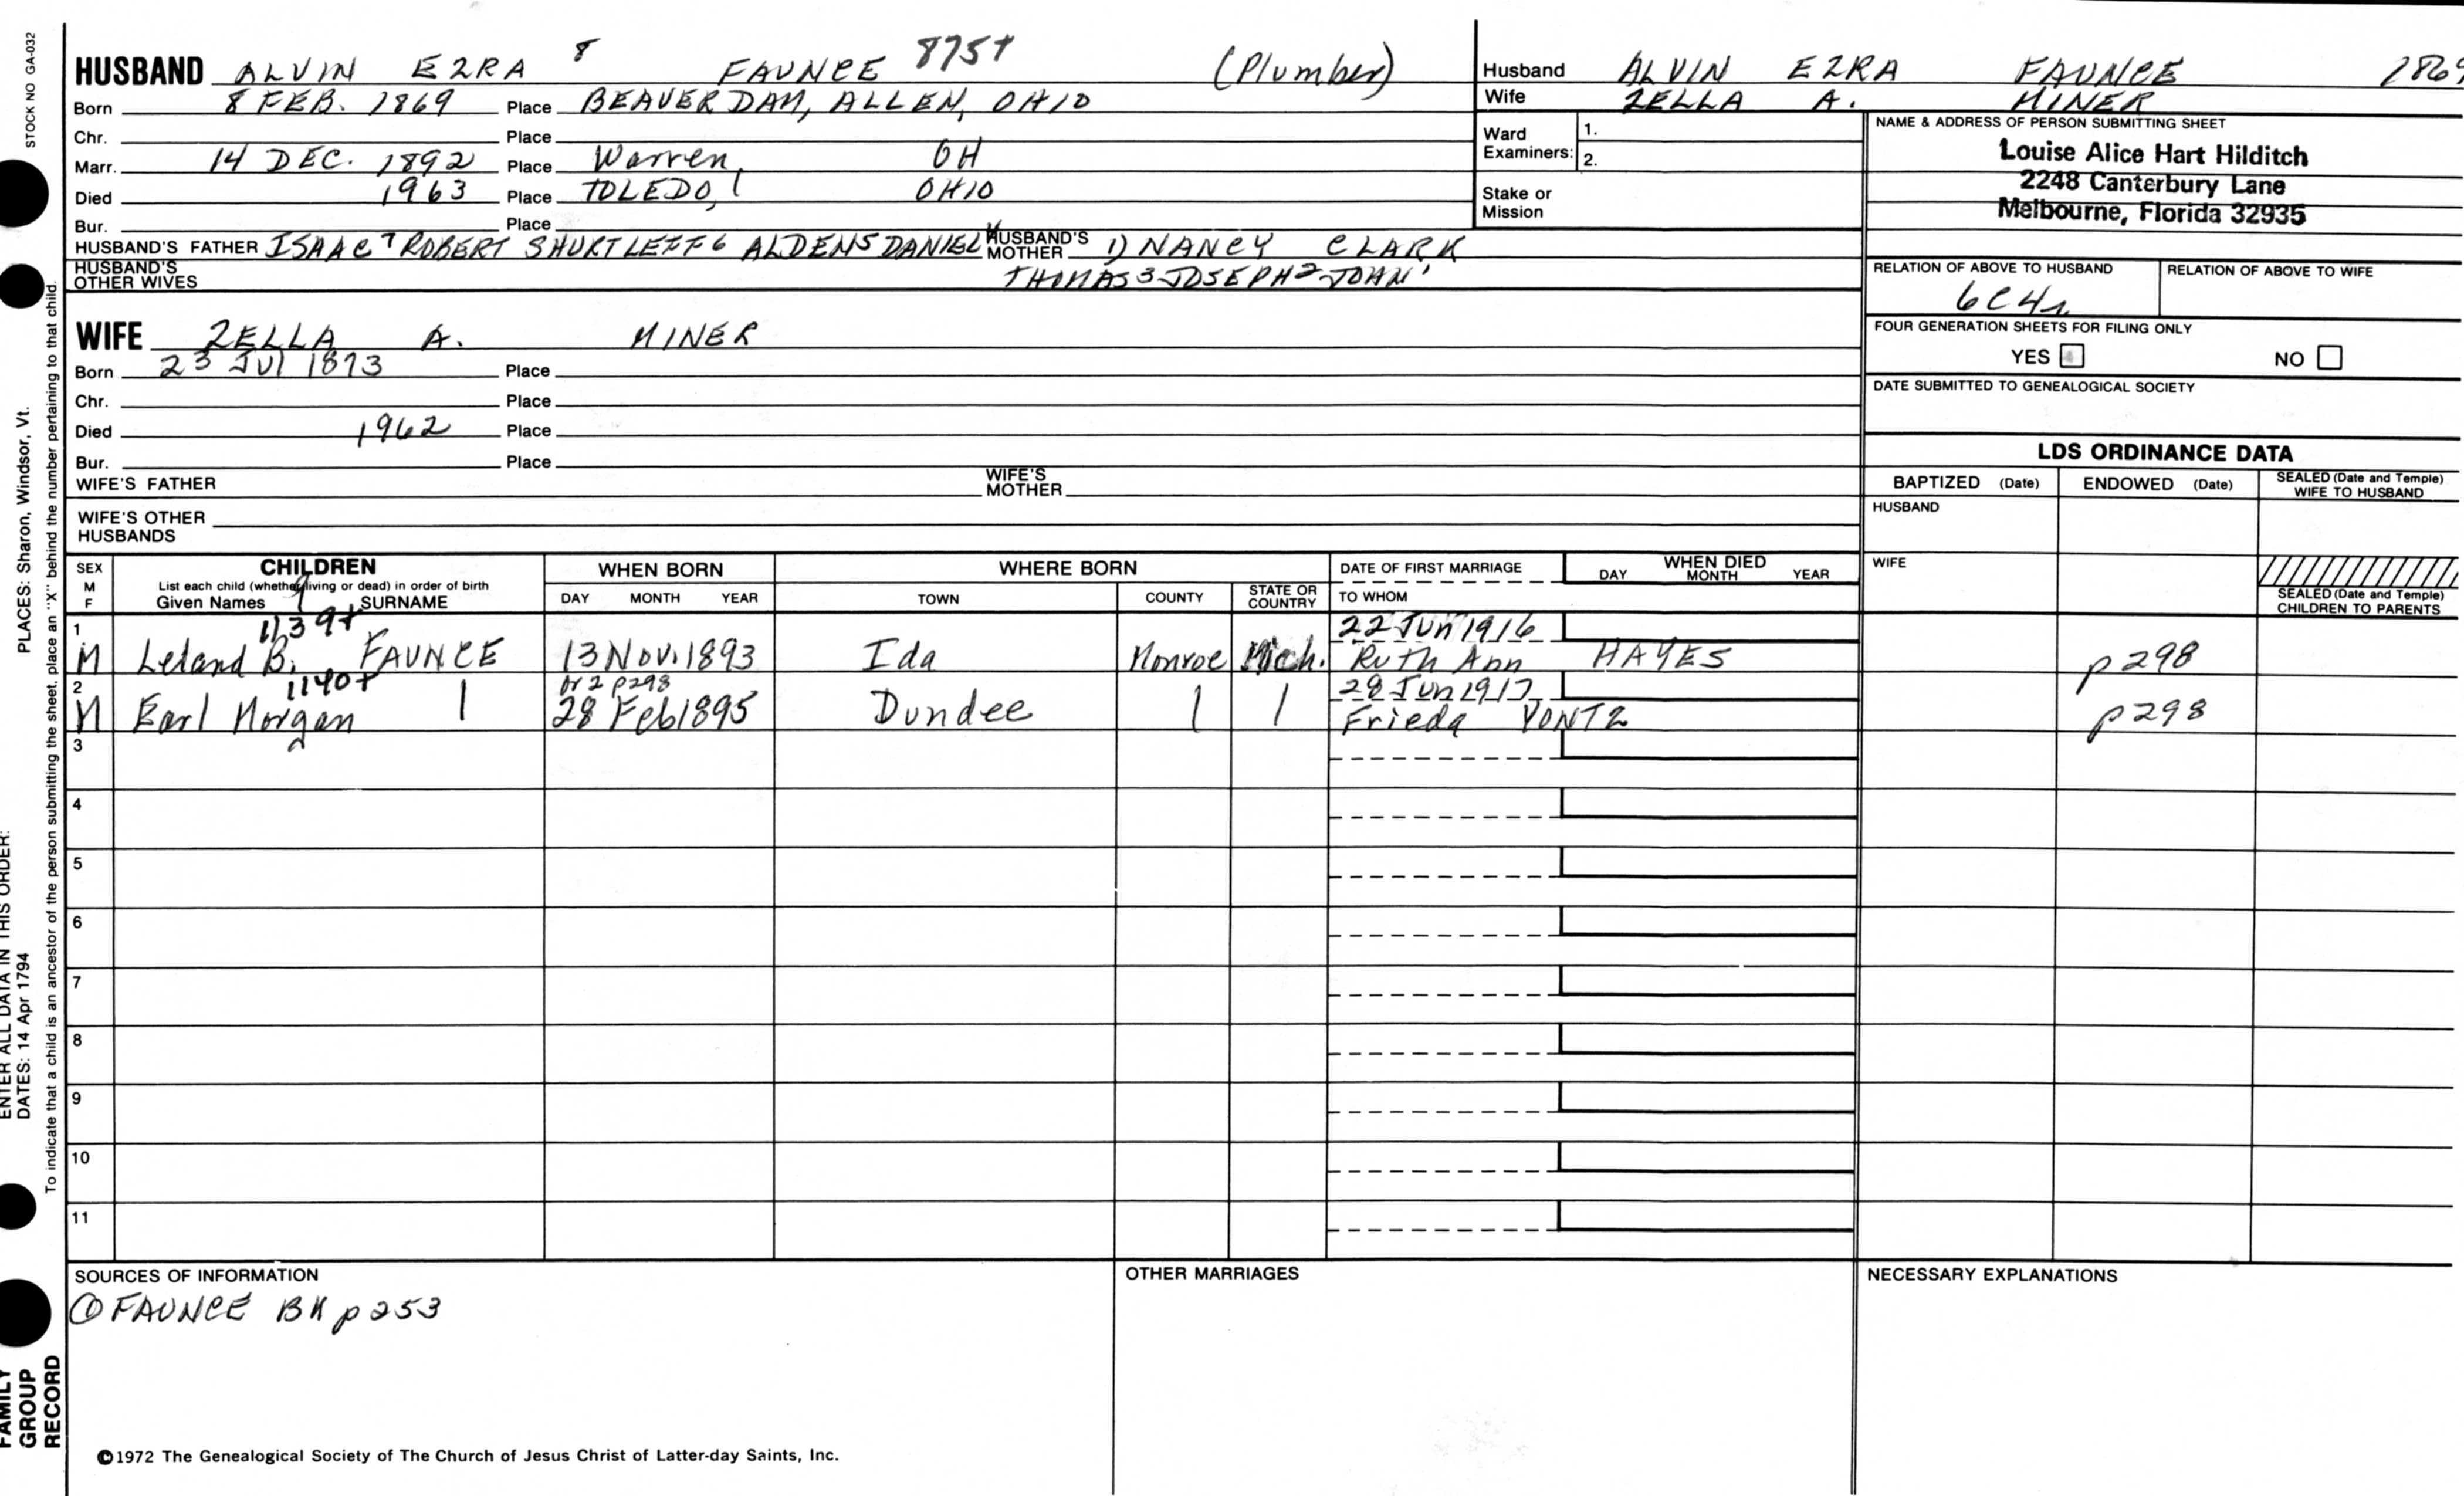 STOCK NO GA-032
HUSBAND ALVIN EZRA 8 FAUNCE 875+ (Plumber)
Born 8 FEB. 1869 Place BEAVER DAM, ALLEN, OHIO
Chr. Place
Marr. 14 DEC. 1892 Place Warren, OH
Died 1963 Place TOLEDO, OHIO
Bur. Place
HUSBAND'S FATHER ISAAC 7 ROBERT SHURTLEFF 6 ALDEN 5 DANIEL 4 HUSBAND'S MOTHER 1) NANCY CLARK
HUSBAND'S OTHER WIVES THOMAS 3 JOSEPH 2 JOHN 1
WIFE ZELLA A. MINER
Born 23 Jul 1873 Place
Chr. Place
Died 1962 Place
Bur. Place
WIFE'S FATHER WIFE'S MOTHER
WIFE'S OTHER HUSBANDS
Husband ALVIN EZRA FAUNCE 1869
Wife ZELLA A. MINER
Ward Examiners: 1.
2.
Stake or Mission
NAME & ADDRESS OF PERSON SUBMITTING SHEET
Louise Alice Hart Hilditch
2248 Canterbury Lane
Melbourne, Florida 32935
RELATION OF ABOVE TO HUSBAND RELATION OF ABOVE TO WIFE
6C4r
FOUR GENERATION SHEETS FOR FILING ONLY
YES NO
DATE SUBMITTED TO GENEALOGICAL SOCIETY
LDS ORDINANCE DATA
BAPTIZED (Date) ENDOWED (Date) SEALED (Date and Temple) WIFE TO HUSBAND
HUSBAND
WIFE
SEALED (Date and Temple) CHILDREN TO PARENTS
SEX M F CHILDREN WHEN BORN WHERE BORN DATE OF FIRST MARRIAGE WHEN DIED
List each child (whether living or dead) in order of birth
Given Names 9 SURNAME DAY MONTH YEAR TOWN COUNTY STATE OR COUNTRY TO WHOM DAY MONTH YEAR
1 1139+ 22 Jun 1916
M Leland B. FAUNCE 13 Nov. 1893 Ida Monroe Mich. Ruth Ann HAYES p298
2 1140+ or 2 p298 28 Jun 1917
M Earl Morgan | 28 Feb 1895 Dundee | | Frieda YONTZ p298
3
4
5
6
7
8
9
10
11
SOURCES OF INFORMATION OTHER MARRIAGES NECESSARY EXPLANATIONS
① FAUNCE BK p253
©1972 The Genealogical Society of The Church of Jesus Christ of Latter-day Saints, Inc.
PLACES: Sharon, Windsor, Vt.
ENTER ALL DATA IN THIS ORDER:
DATES: 14 Apr 1794
To indicate that a child is an ancestor of the person submitting the sheet, place an "X" behind the number pertaining to that child.
FAMILY GROUP RECORD